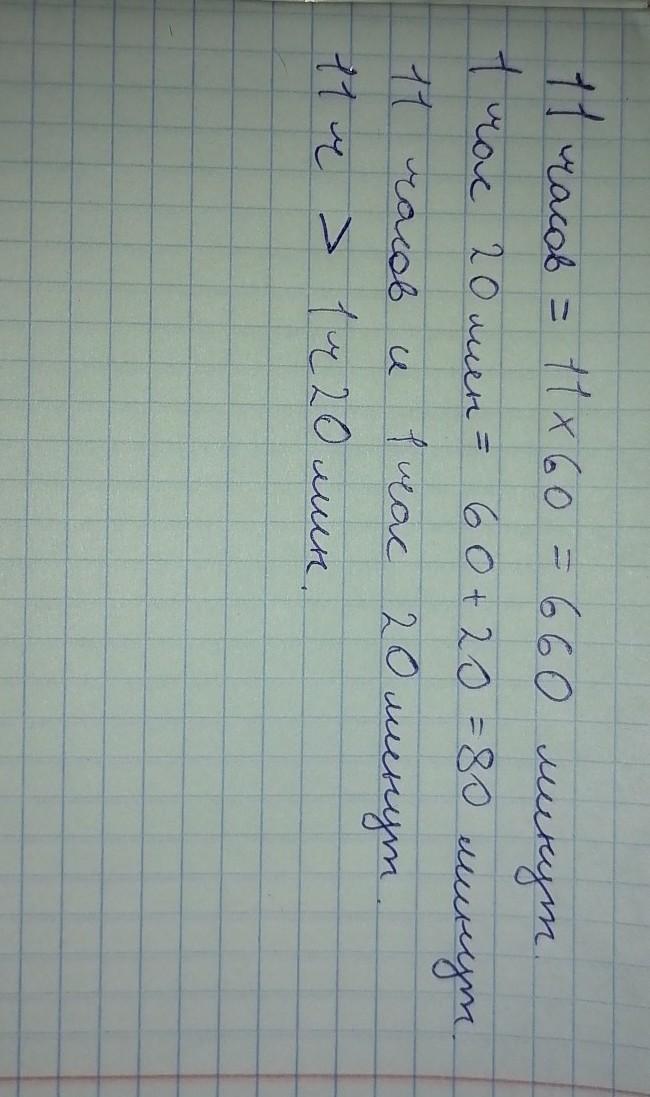 11 часов = 11 × 60 = 660 минут.
1 час 20 мин = 60 + 20 = 80 минут.
11 часов и 1 час 20 минут.
11 ч > 1 ч 20 мин.